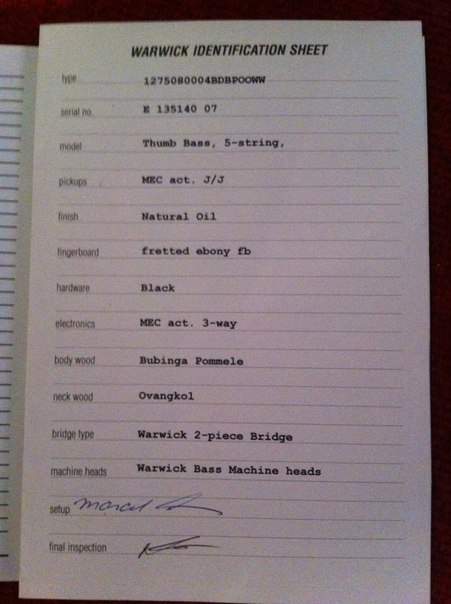 WARWICK IDENTIFICATION SHEET
type 1275080004BDBPOOWW
serial no. E 135140 07
model Thumb Bass, 5-string,
pickups MEC act. J/J
finish Natural Oil
fingerboard fretted ebony fb
hardware Black
electronics MEC act. 3-way
body wood Bubinga Pommele
neck wood Ovangkol
bridge type Warwick 2-piece Bridge
machine heads Warwick Bass Machine heads
setup Marcel
final inspection